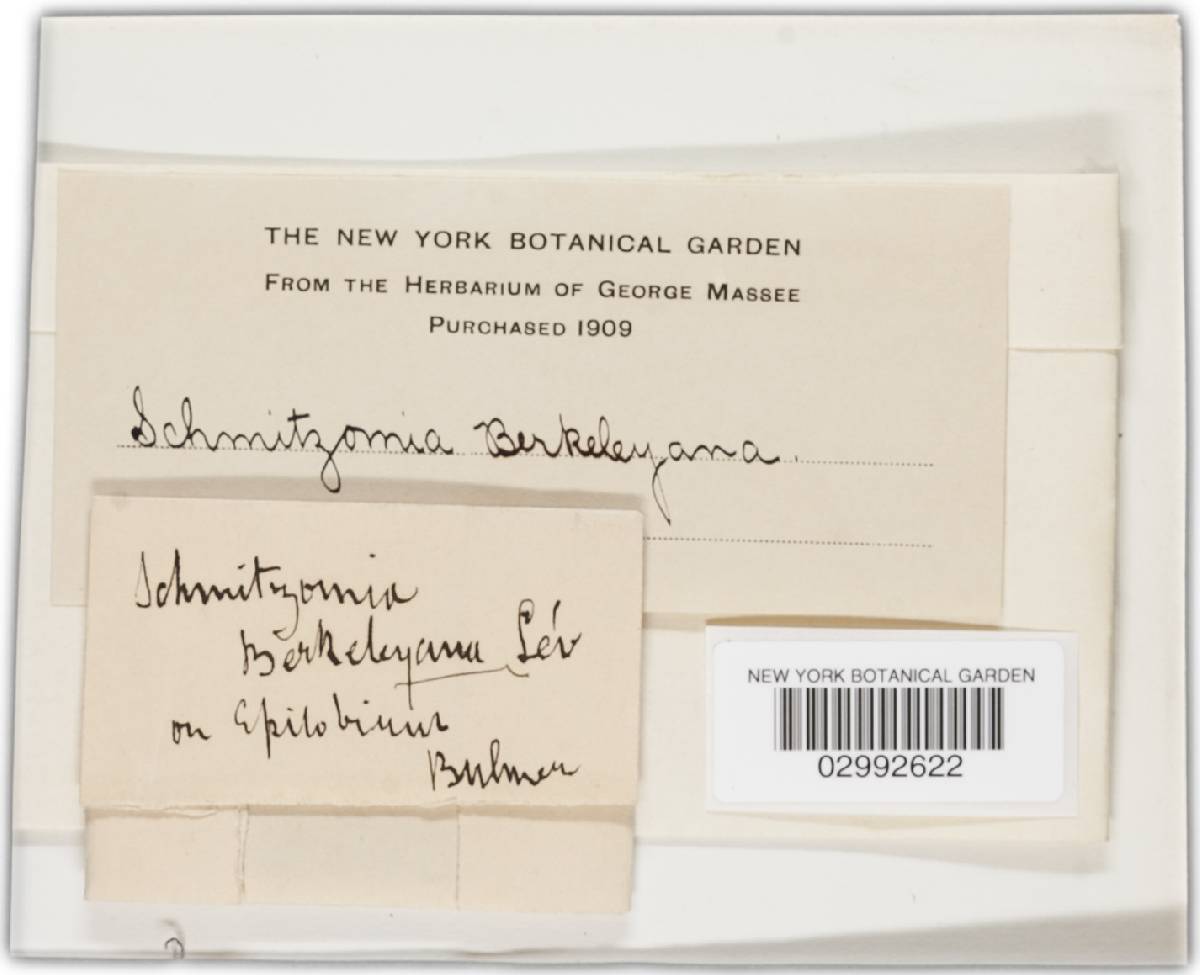 THE NEW YORK BOTANICAL GARDEN
FROM THE HERBARIUM OF GEORGE MASSEE
PURCHASED 1909
Schmitzomia Berkeleyana.
Schmitzomia
Berkeleyana Lév
on Epilobium
Bulmer
NEW YORK BOTANICAL GARDEN
02992622